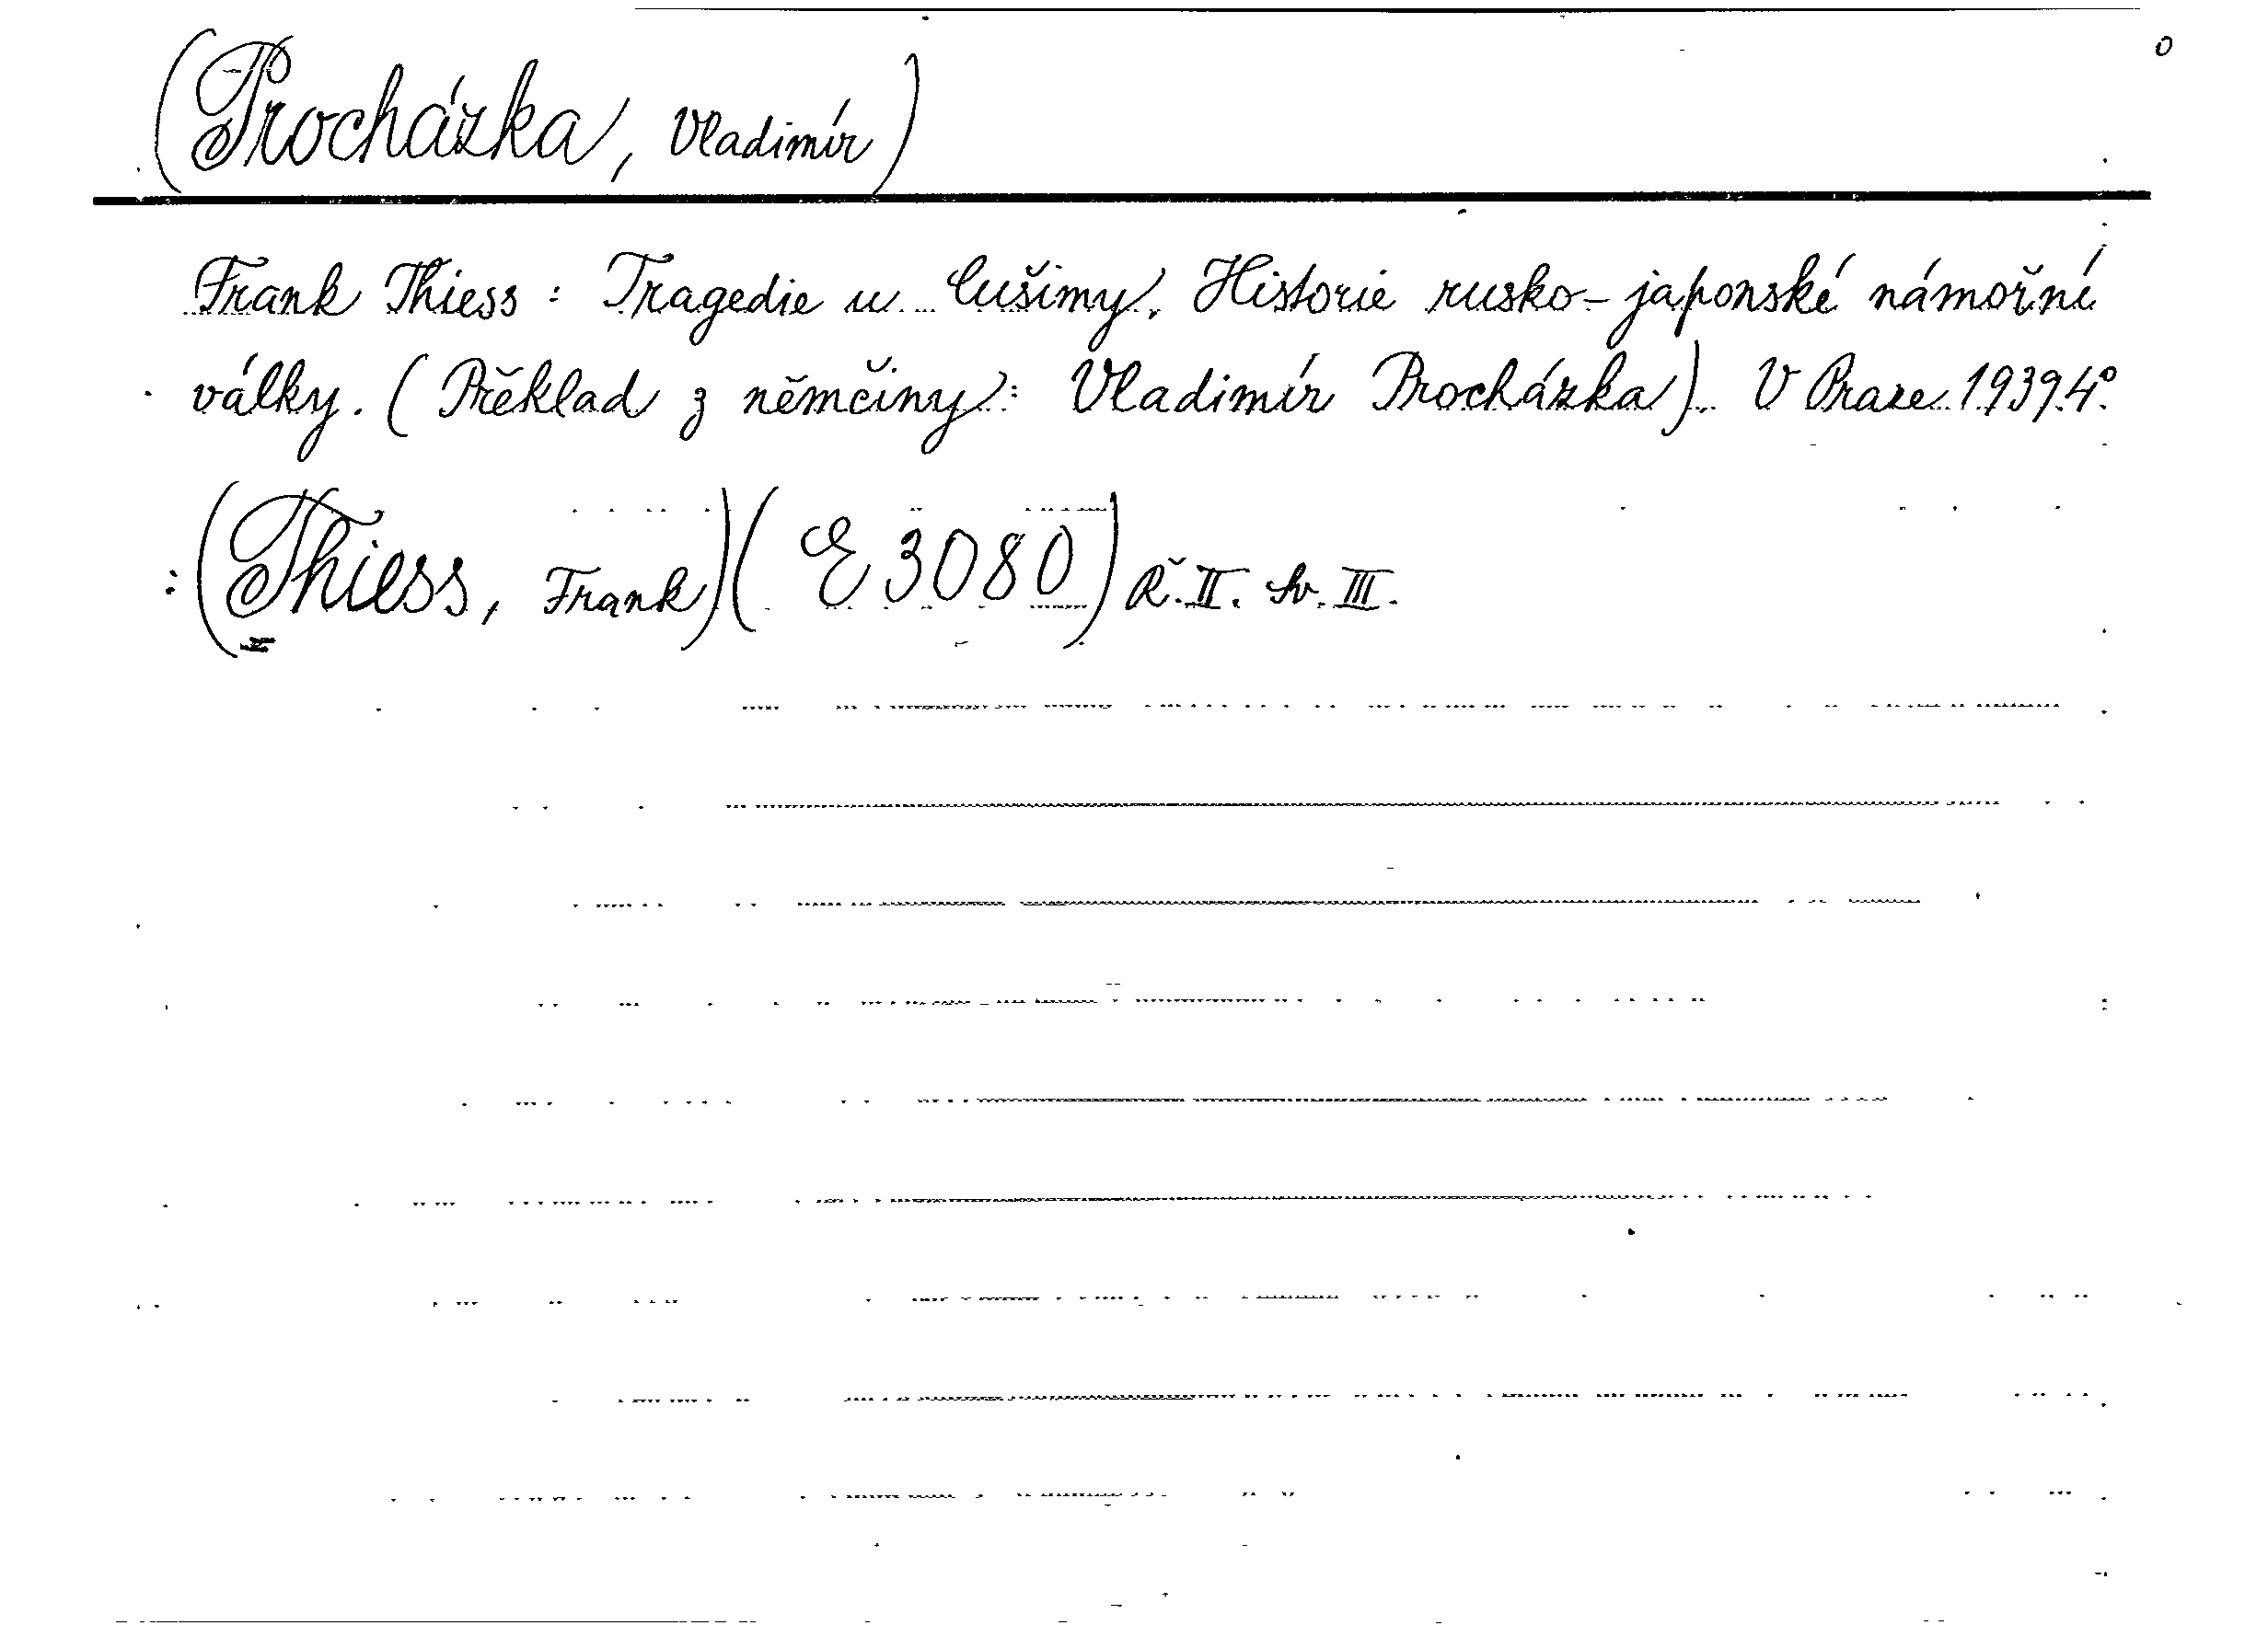 (Procházka, Vladimír)
Frank Thiess: Tragedie u Cušimy. Historie rusko-japonské námořní
války. (Překlad z němčiny: Vladimír Procházka). V Praze 1939. 4°.
: (Thiess, Frank) (E 3080) Ř. II. Sv. III.